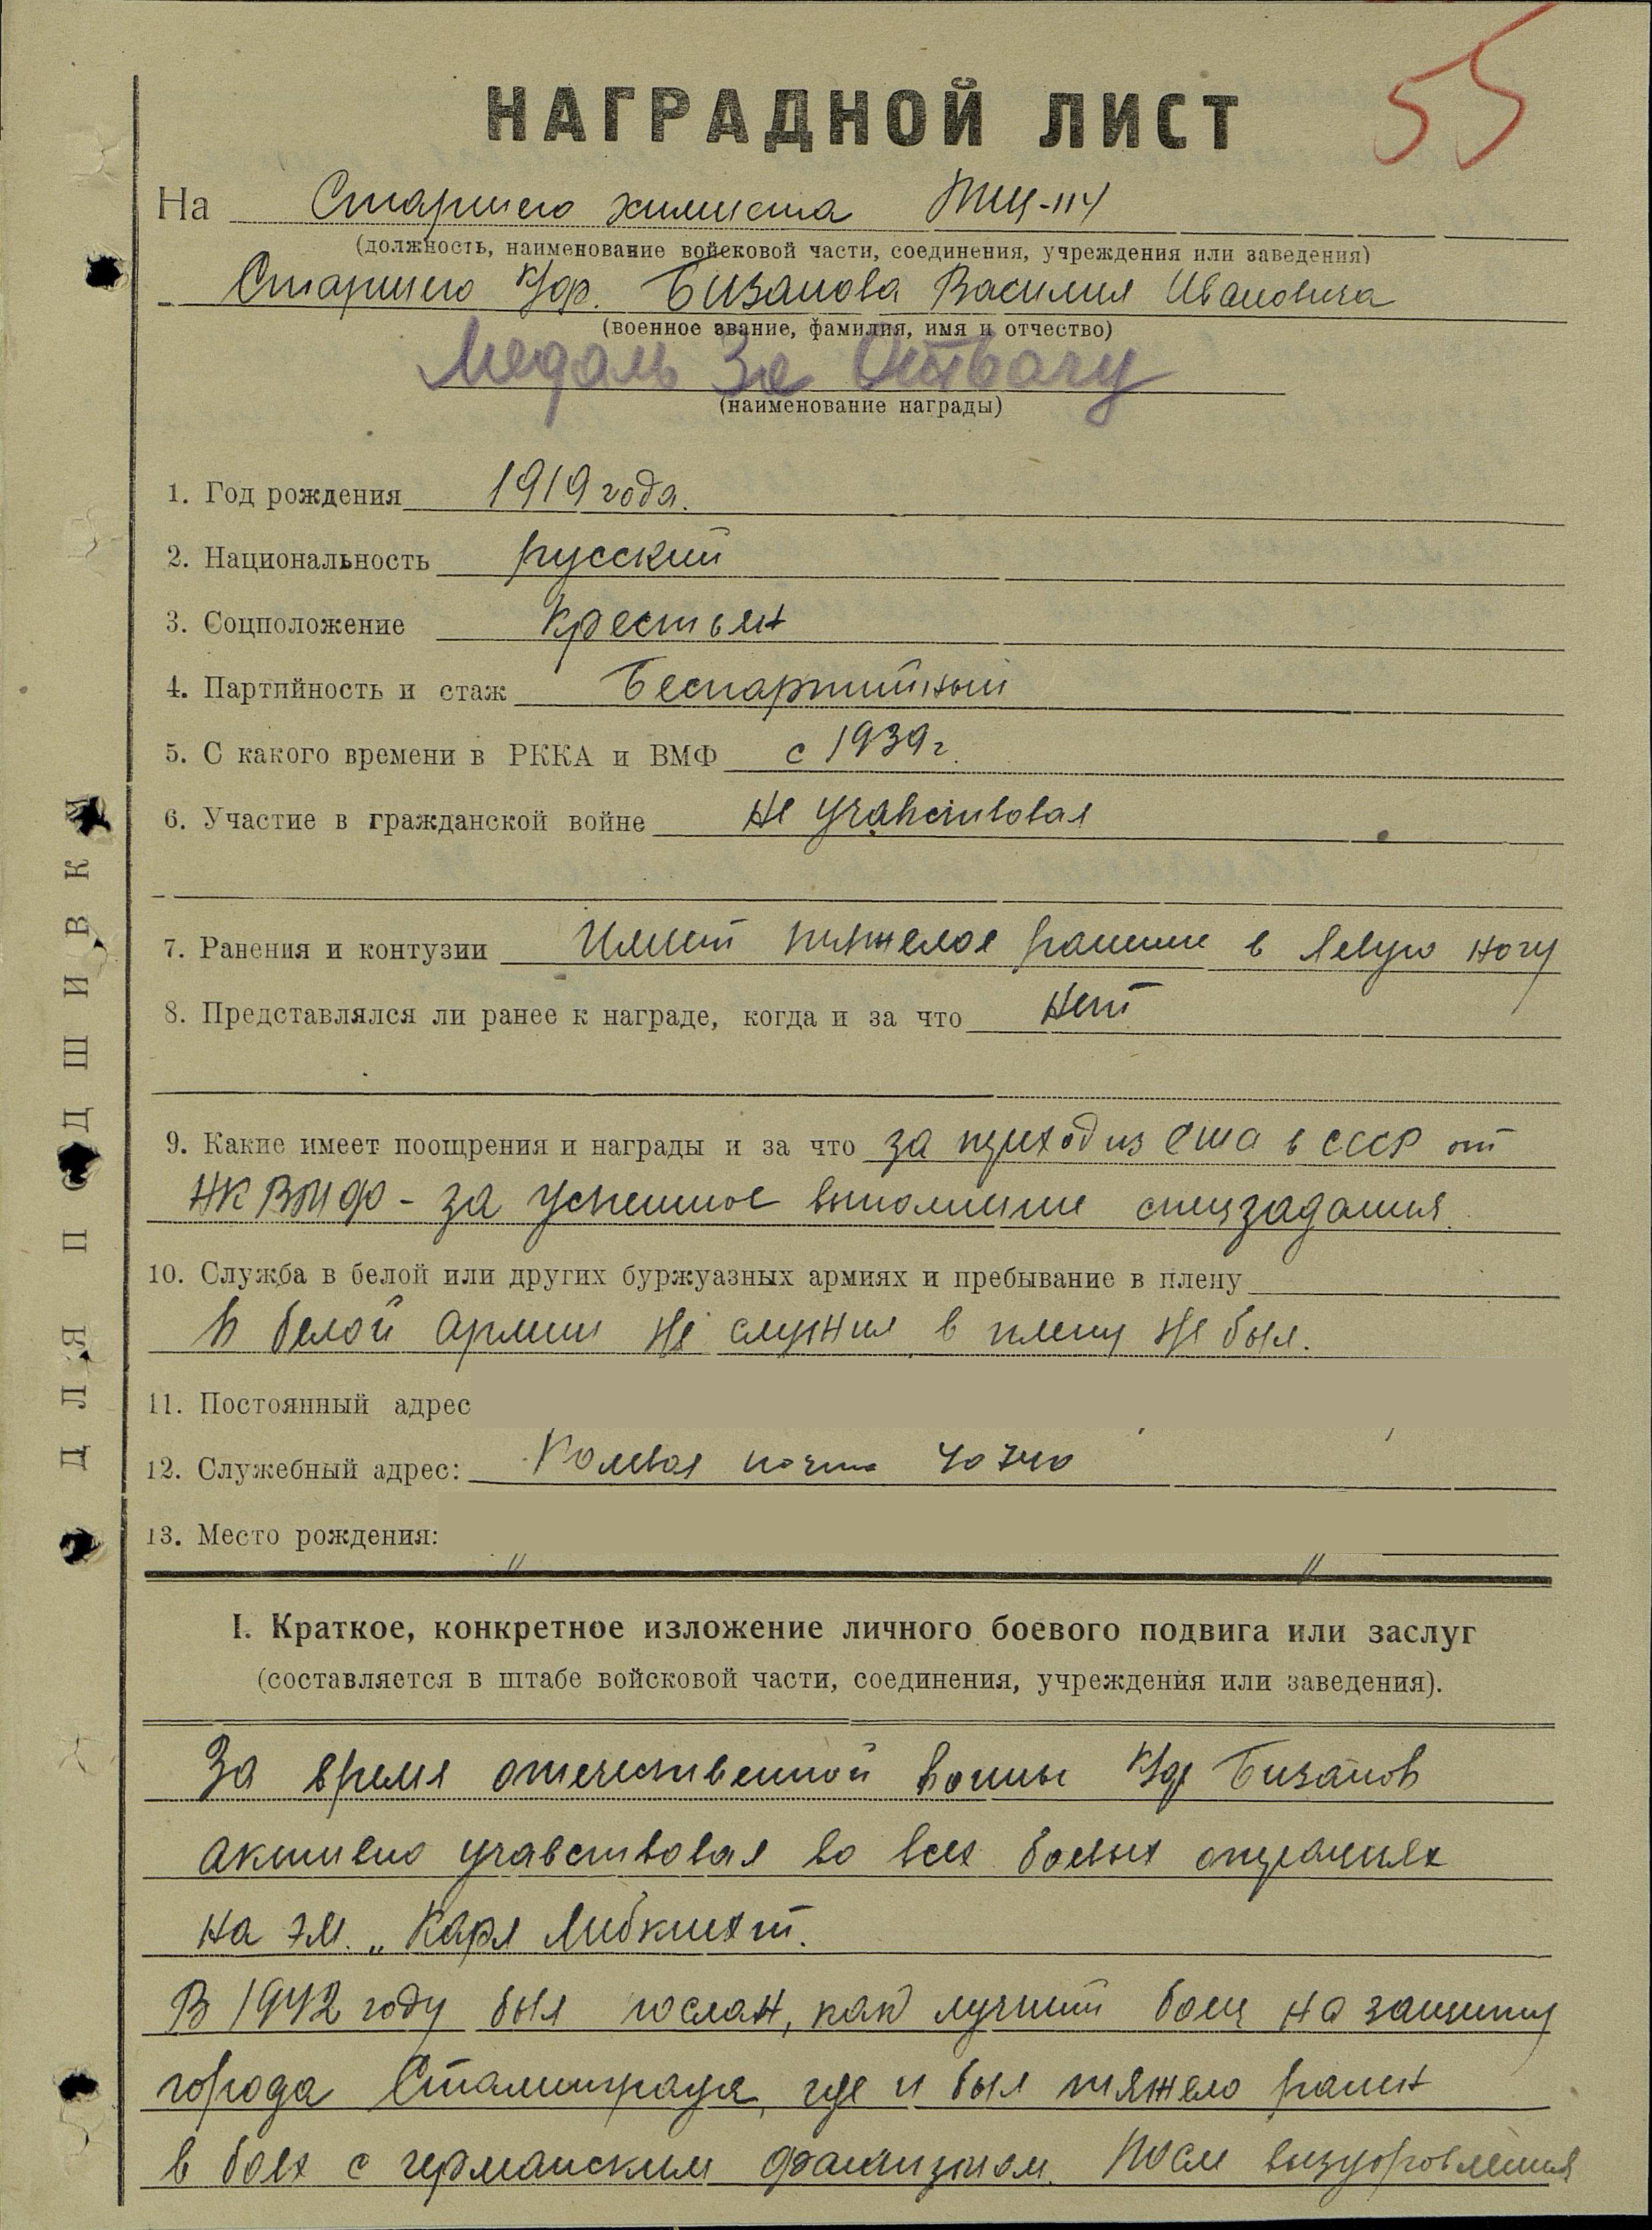 55
НАГРАДНОЙ ЛИСТ
На Старшего химиста ТЩ-114
(должность, наименование войсковой части, соединения, учреждения или заведения)
Старшего к/ф. Бизанова Василия Ивановича
(военное звание, фамилия, имя и отчество)
Медаль За Отвагу
(наименование награды)
1. Год рождения 1919 года.
2. Национальность русский
3. Соцположение Крестьян
4. Партийность и стаж Беспартийный
5. С какого времени в РККА и ВМФ с 1939 г.
6. Участие в гражданской войне не учавствовал
7. Ранения и контузии Имеет тяжелое ранение в левую ногу
8. Представлялся ли ранее к награде, когда и за что нет
9. Какие имеет поощрения и награды и за что за переход из сша в СССР от
НКВМФ - за успешное выполнение спецзадания.
10. Служба в белой или других буржуазных армиях и пребывание в плену
В белой армии не служил, в плену не был.
11. Постоянный адрес
12. Служебный адрес: Полевая почта
13. Место рождения:
I. Краткое, конкретное изложение личного боевого подвига или заслуг
(составляется в штабе войсковой части, соединения, учреждения или заведения).
За время отечественной войны к/ф Бизанов
активно учавствовал во всех боевых операциях
на эм. „Карл Либкнехт.
В 1942 году был послан, как лучший боец на защиту
города Сталинграда, где и был тяжело ранен
в боях с германским фашизмом. После выздоровления
ДЛЯ ПОДШИВКИ